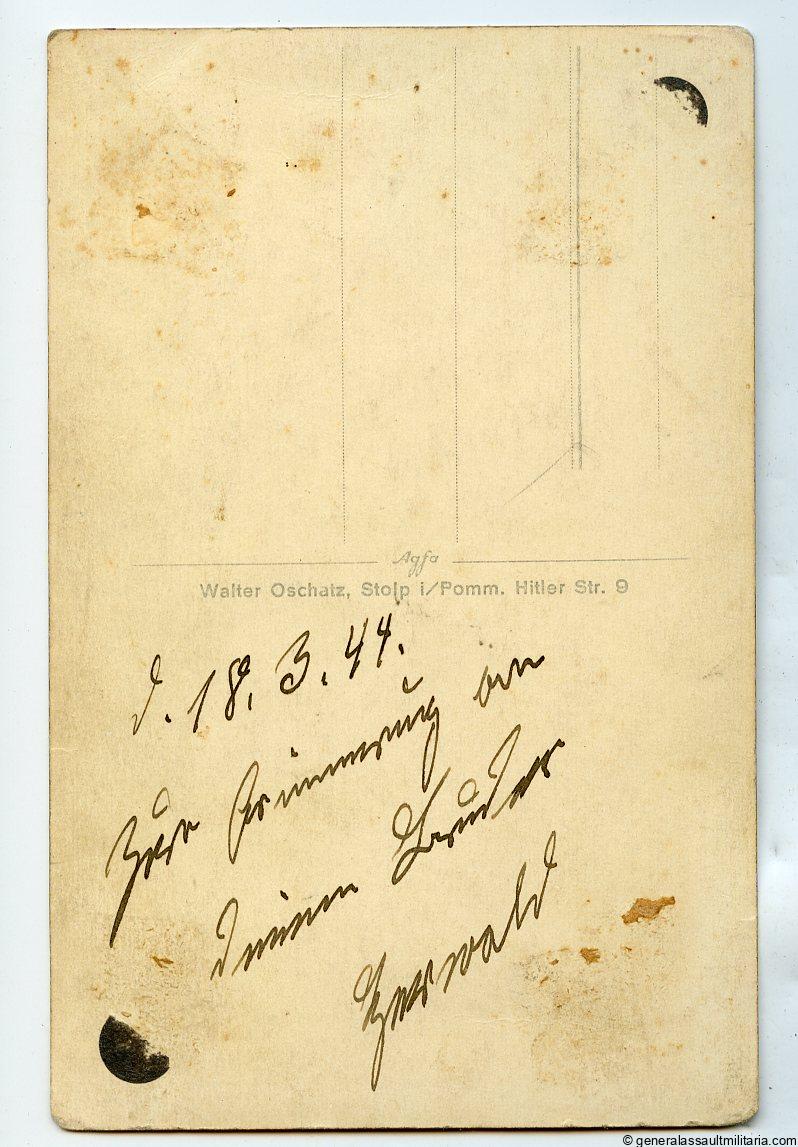 Agfa
Walter Oschatz, Stolp i/Pomm. Hitler Str. 9
d. 18. 3. 44.
Zur Erinnerung an
deinen Bruder
© generalassaultmilitaria.com